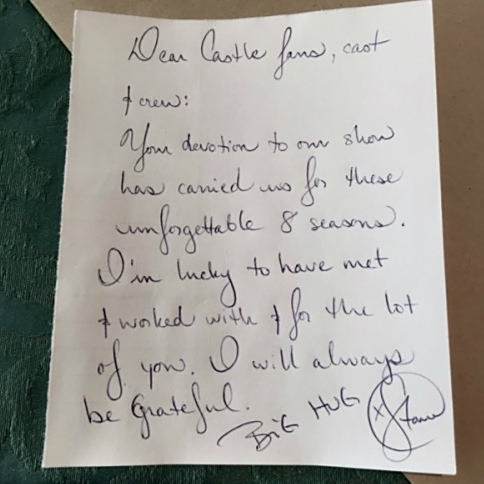 Dear Castle fans, cast
& crew:
Your devotion to our show
has carried us for these
unforgettable 8 seasons.
I'm lucky to have met
& worked with & for the lot
of you. I will always
be grateful.
BiG HUG x Stana